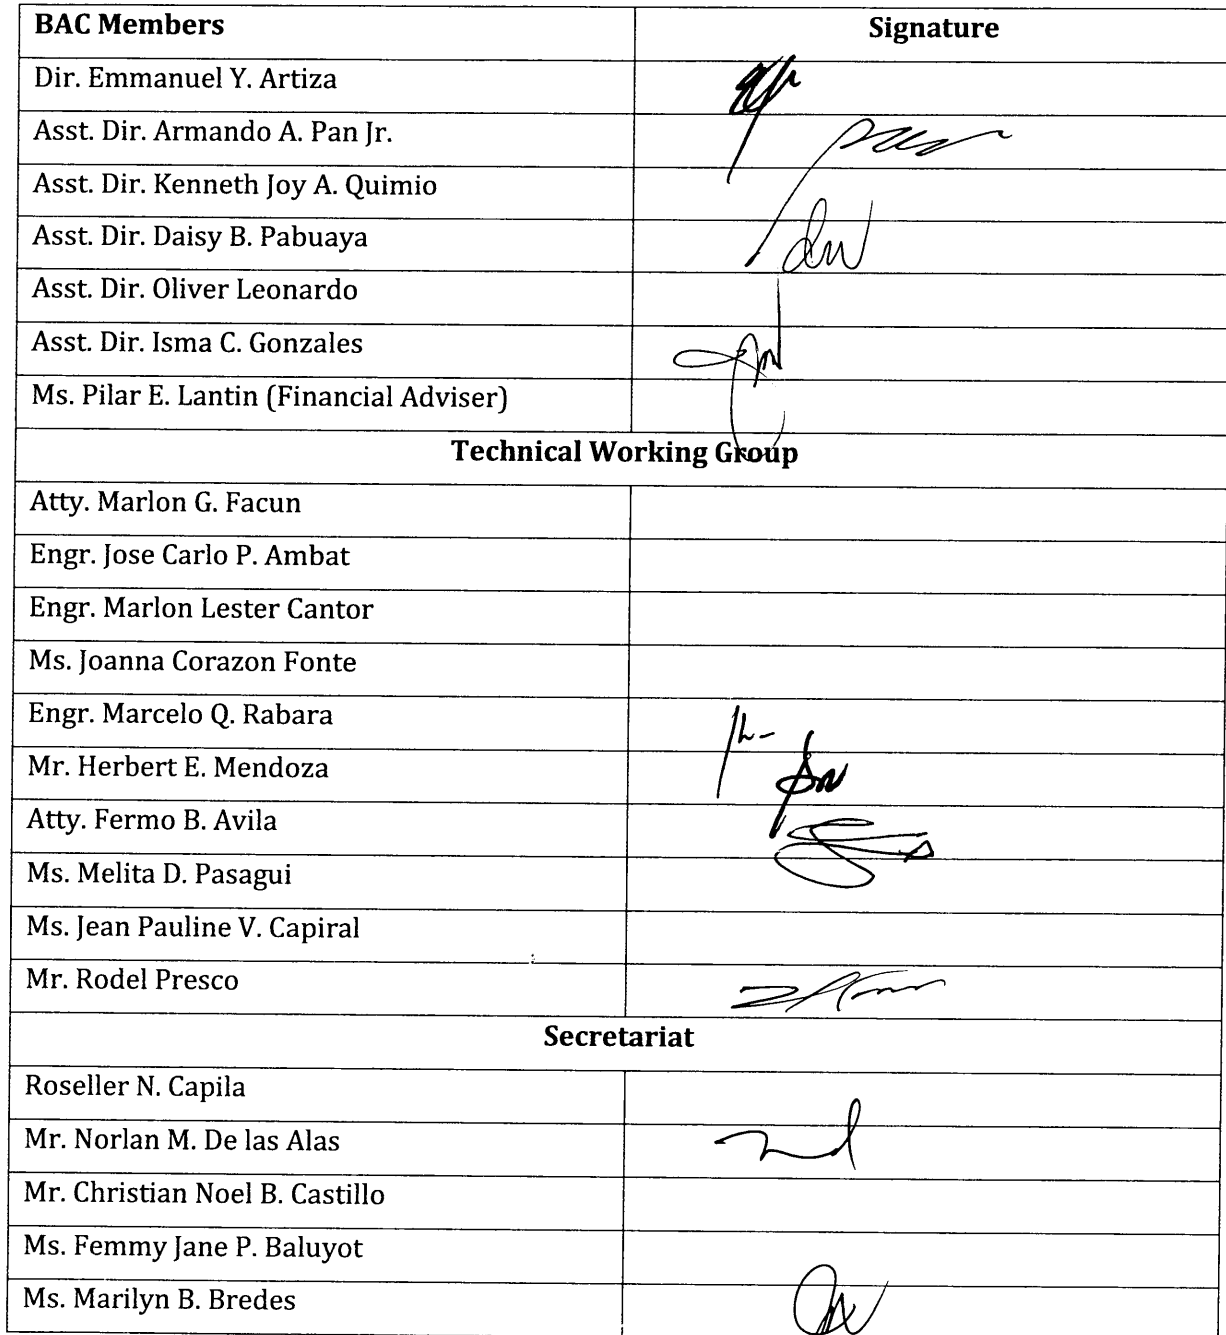 BAC Members Signature
Dir. Emmanuel Y. Artiza
Asst. Dir. Armando A. Pan Jr.
Asst. Dir. Kenneth Joy A. Quimio
Asst. Dir. Daisy B. Pabuaya
Asst. Dir. Oliver Leonardo
Asst. Dir. Isma C. Gonzales
Ms. Pilar E. Lantin (Financial Adviser)
Technical Working Group
Atty. Marlon G. Facun
Engr. Jose Carlo P. Ambat
Engr. Marlon Lester Cantor
Ms. Joanna Corazon Fonte
Engr. Marcelo Q. Rabara
Mr. Herbert E. Mendoza
Atty. Fermo B. Avila
Ms. Melita D. Pasagui
Ms. Jean Pauline V. Capiral
Mr. Rodel Presco
Secretariat
Roseller N. Capila
Mr. Norlan M. De las Alas
Mr. Christian Noel B. Castillo
Ms. Femmy Jane P. Baluyot
Ms. Marilyn B. Bredes